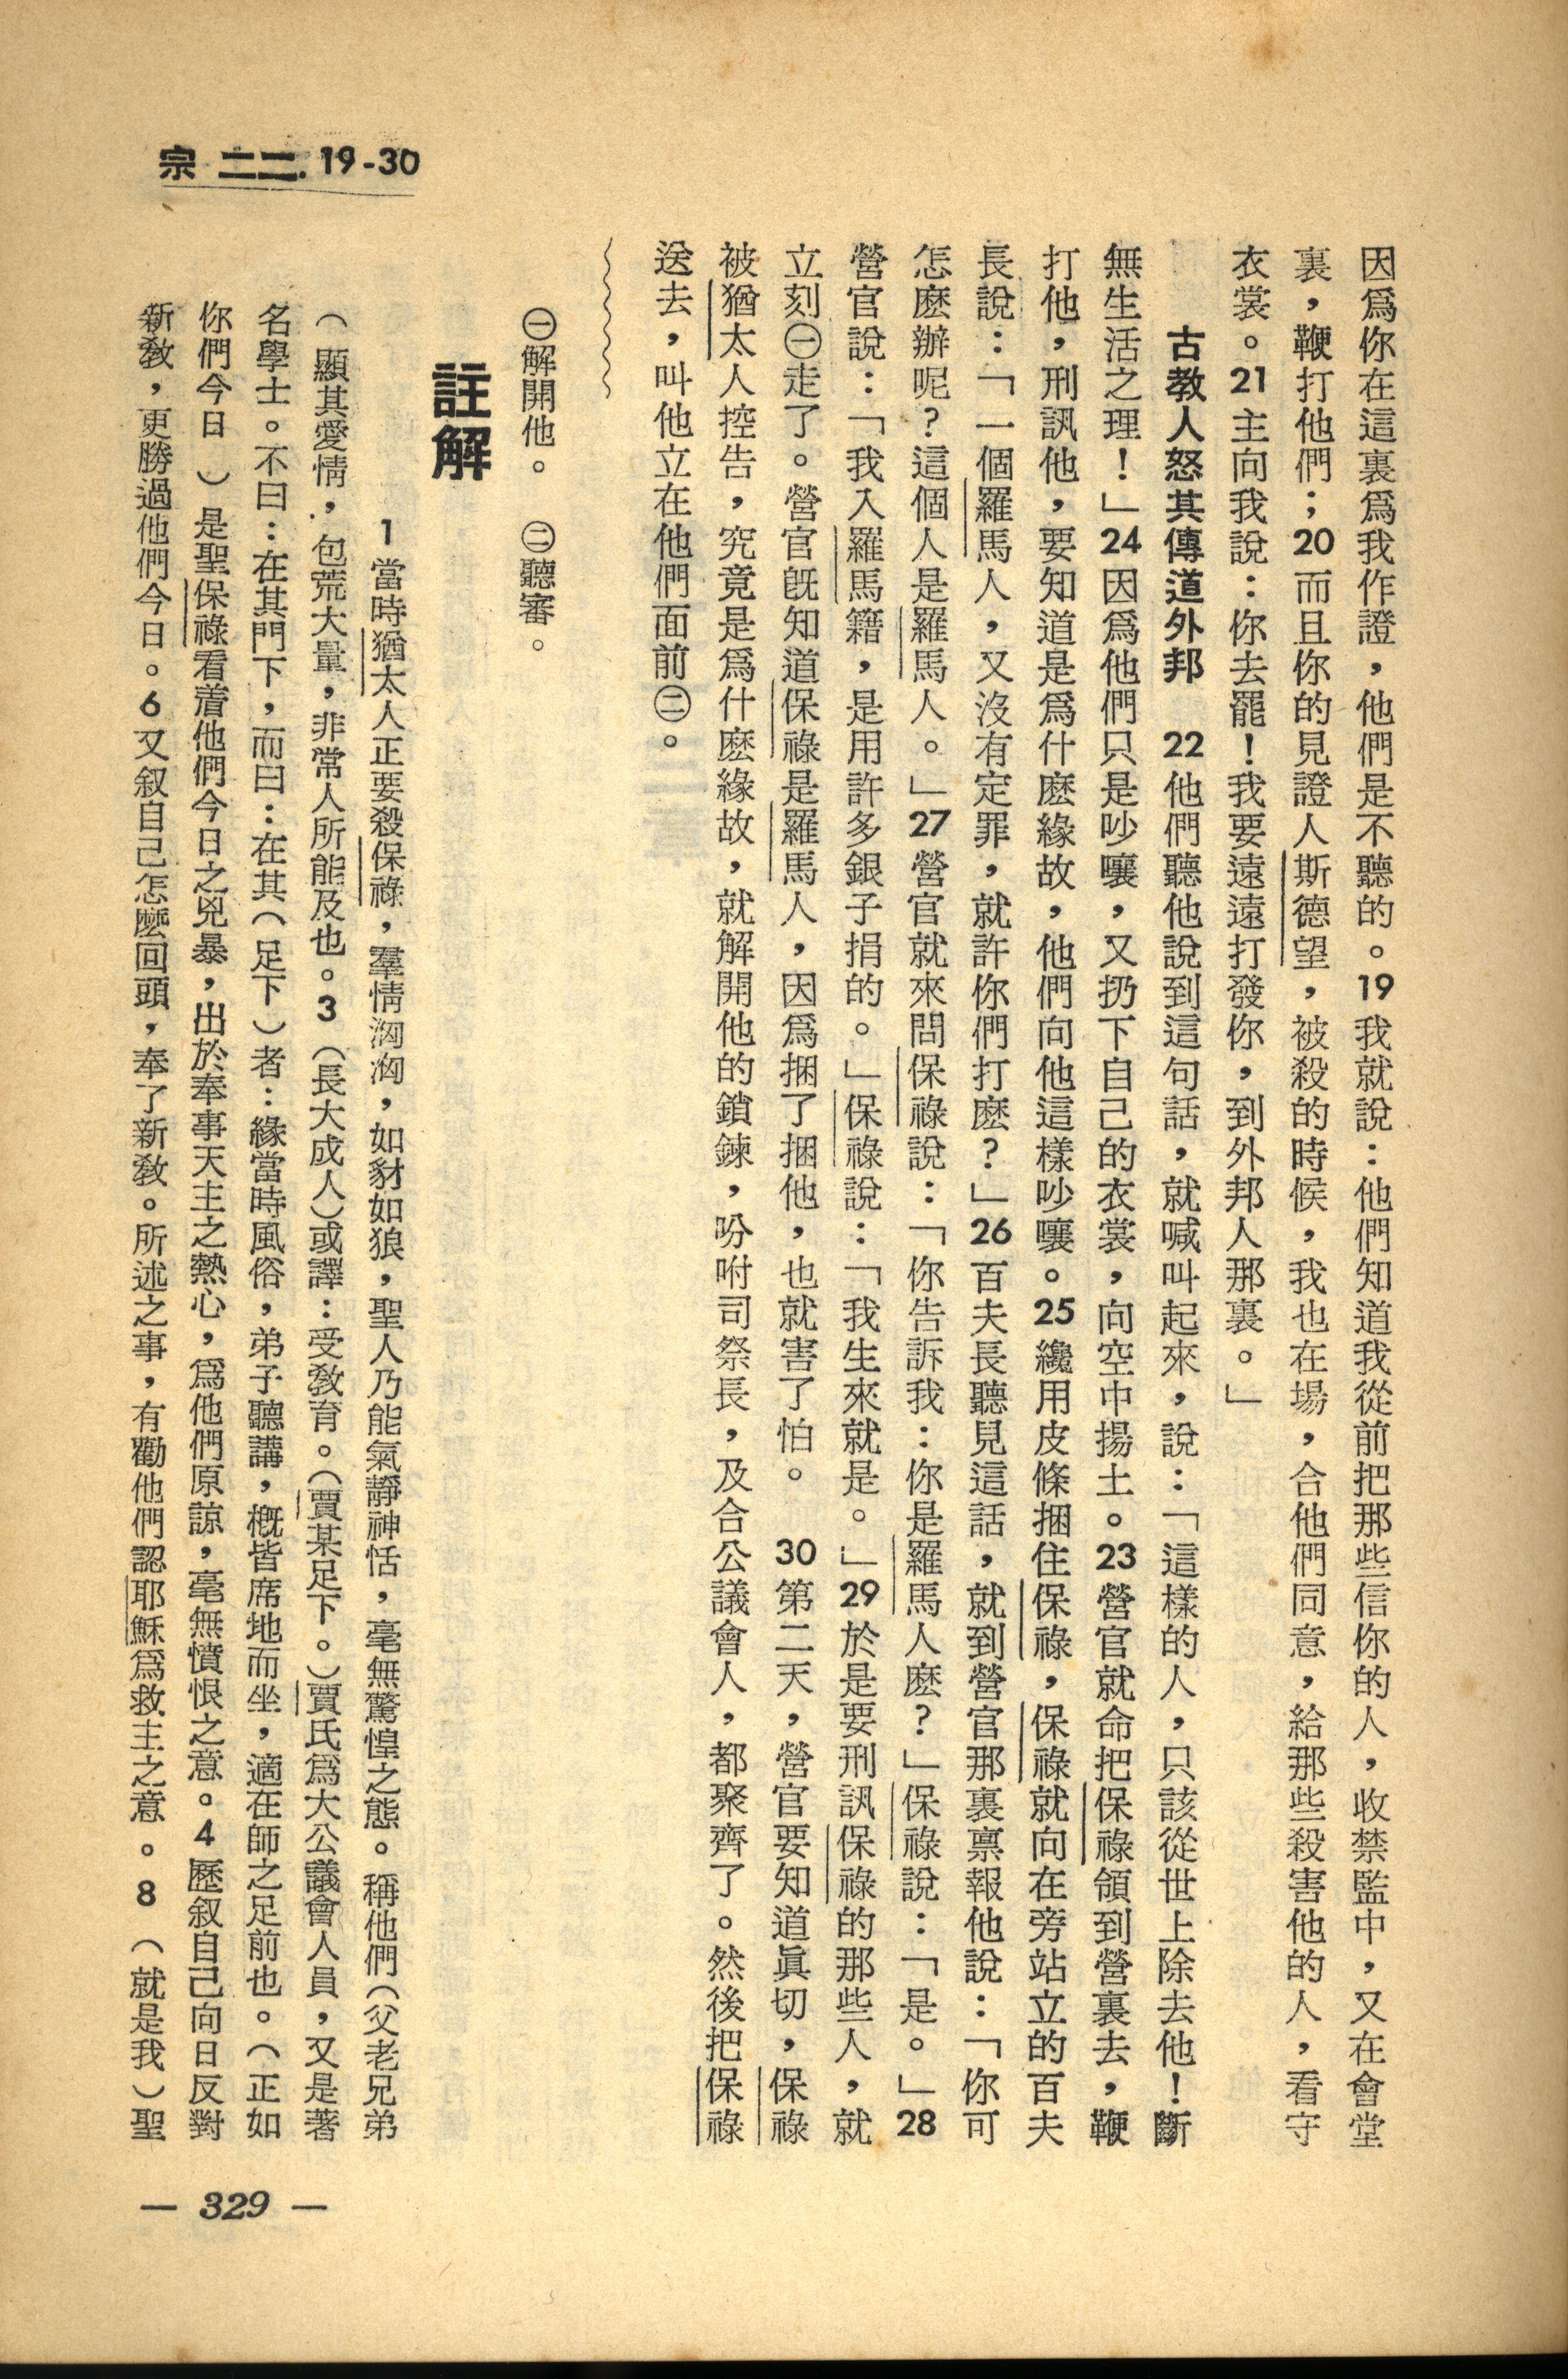 宗 二二. 19-30
因爲你在這裏爲我作證，他們是不聽的。19我就說：他們知道我從前把那些信你的人，收禁監中，又在會堂
裏，鞭打他們；20而且你的見證人斯德望，被殺的時候，我也在場，合他們同意，給那些殺害他的人，看守
衣裳。21主向我說：你去罷！我要遠遠打發你，到外邦人那裏。」
古教人怒其傳道外邦　22他們聽他說到這句話，就喊叫起來，說：「這樣的人，只該從世上除去他！斷
無生活之理！」24因爲他們只是吵嚷，又扔下自己的衣裳，向空中揚土。23營官就命把保祿領到營裏去，鞭
打他，刑訊他，要知道是爲什麽緣故，他們向他這樣吵嚷。25纔用皮條捆住保祿，保祿就向在旁站立的百夫
長說：「一個羅馬人，又沒有定罪，就許你們打麽？」26百夫長聽見這話，就到營官那裏禀報他說：「你可
怎麽辦呢？這個人是羅馬人。」27營官就來問保祿說：「你告訴我：你是羅馬人麽？」保祿說：「是。」28
營官說：「我入羅馬籍，是用許多銀子捐的。」保祿說：「我生來就是。」29於是要刑訊保祿的那些人，就
立刻㊀走了。營官旣知道保祿是羅馬人，因爲捆了捆他，也就害了怕。　30第二天，營官要知道眞切，保祿
被猶太人控告，究竟是爲什麽緣故，就解開他的鎖鍊，吩咐司祭長，及合公議會人，都聚齊了。然後把保祿
送去，叫他立在他們面前㊁。
㊀解開他。　㊁聽審。
註解
1當時猶太人正要殺保祿，羣情洶洶，如豺如狼，聖人乃能氣靜神恬，毫無驚惶之態。稱他們（父老兄弟
（顯其愛情，包荒大量，非常人所能及也。3（長大成人）或譯：受敎育。（賈某足下。）賈氏爲大公議會人員，又是著
名學士。不曰：在其門下，而曰：在其（足下）者：緣當時風俗，弟子聽講，槪皆席地而坐，適在師之足前也。（正如
你們今日）是聖保祿看着他們今日之兇暴，出於奉事天主之熱心，爲他們原諒，毫無憤恨之意。4歷叙自己向日反對
新敎，更勝過他們今日。6又叙自己怎麽回頭，奉了新敎。所述之事，有勸他們認耶穌爲救主之意。8（就是我）聖
— 329 —